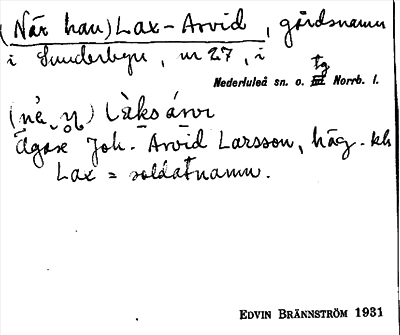 (När han) Lax-Arvid, gårdsnamn
i Sunderbyn, nr 27, i
Nederluleå sn. o. tg Norrb. l.
Ägare Joh. Arvid Larsson, häg.
Lax = soldatnamn.
EDVIN BRÄNNSTRÖM 1931